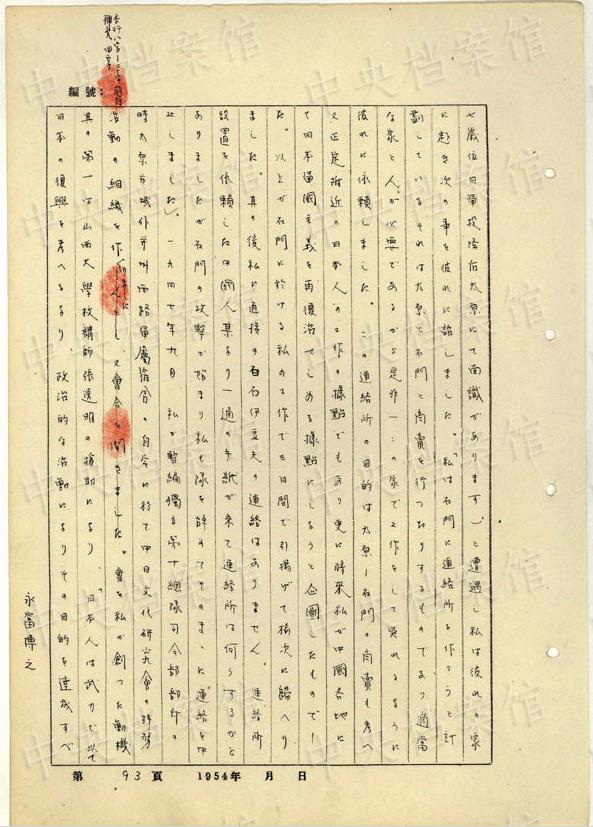 本行八字ヨリ二字削除
編號：
七歳位日軍投降后太原にて面識があります）と遭遇し私は彼れの家
に赴き次の事を彼れに話しました。「私は石門に連絡所を作らうと計
劃しているそれは太原と石門と商賣を行つたりするものであり適當
な家と人が必要であるから是非一つの家で工作をして貰れるように」
彼れに依頼しました。この連絡所の目的は太原ー石門の商賣も考へ
又正定附近の日本人の工作の據點でもあり更に將来私が中國各地に
て日本帝國主義を再復活せしめる據點にしようと企圖したものでし
た。以上が石門に於ける私の工作で三日間で引揚げて楡次に歸へり
ました。其の後私に直接の白石伊豆夫の連絡はありません。連絡所
設置を依頼した中國人某より一通の手紙が来て連絡所は何うするかと
ありましたが石門の攻撃が始まり私も隊を辞めてそのまゝに連絡を中
止しました」。一九四七年九月 私が暫編獨立第十總隊司令部部附の
時太原市城外并州西路軍屬宿舎の自宅に於て中日文化研究會の特務
活動の組織を作り 又會合を開きました。會を私が創つた動機
其の第一は山西大學校講師張達明の援助により、「日本人は武力で以て
日本の復興を考へるより、政治的な活動によりその目的を達成すべ
永富博之
第 93 頁 1954年 月 日
中央档案馆